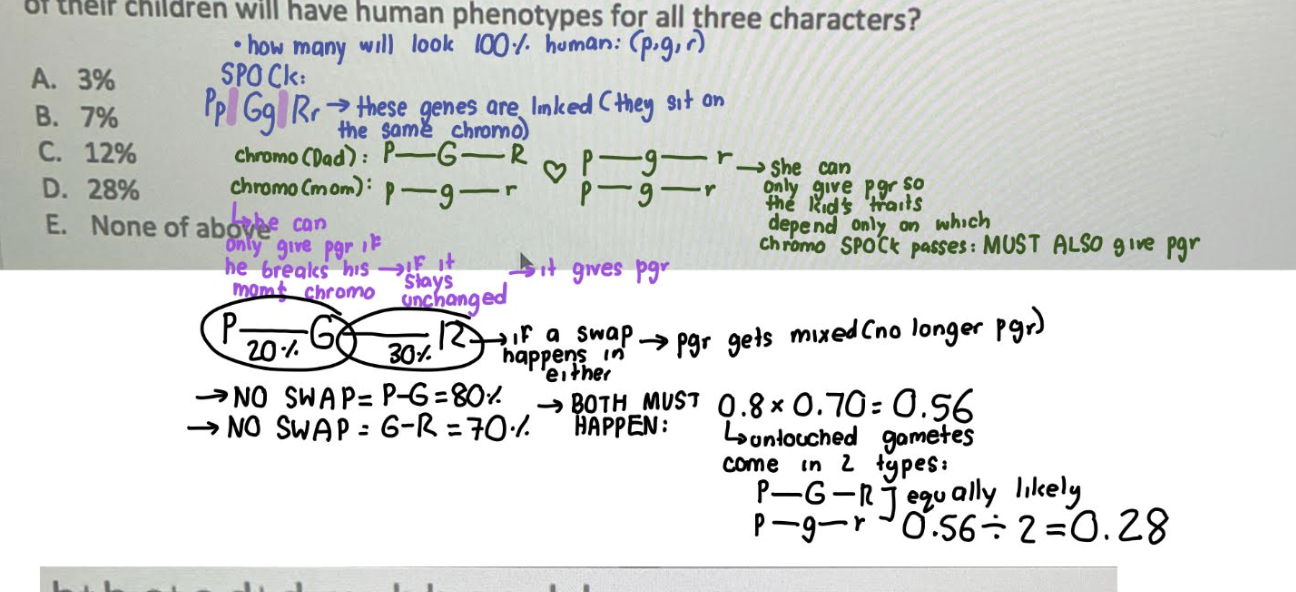 of their children will have human phenotypes for all three characters?
• how many will look 100% human: (p,g,r)
A. 3%
B. 7%
C. 12%
D. 28%
E. None of above
SPOCK:
Pp Gg Rr → these genes are linked (they sit on
the same chromo)
chromo (Dad): P—G—R ♡ p—g—r → She can
chromo (mom): p—g—r p—g—r only give pgr so
the kid's traits
depend only on which
chromo SPOCK passes: MUST ALSO give pgr
↳ he can
only give pgr if
he breaks his → if it → it gives pgr
mom's chromo stays
unchanged
P—G—R → if a swap → pgr gets mixed (no longer pgr)
20% 30% happens in
either
→ NO SWAP = P-G = 80% → BOTH MUST 0.8 × 0.70 = 0.56
→ NO SWAP = G-R = 70% HAPPEN: ↳ untouched gametes
come in 2 types:
P—G—R ] equally likely
p—g—r 0.56 ÷ 2 = 0.28